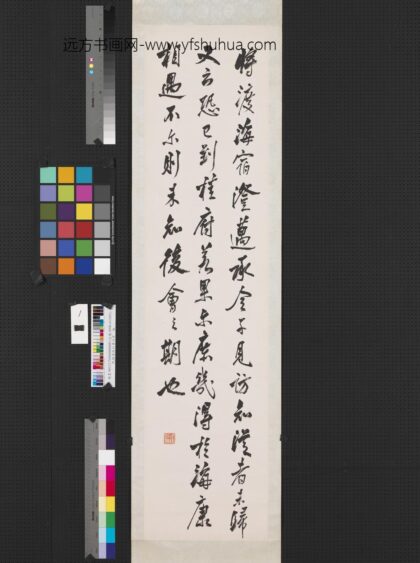 远方书画网-www.yfshuhua.com
將渡海宿澄邁承令子見訪知從者未歸
又云恐已到桂府若果尔庶幾得於海康
相遇不尔則未知後會之期也